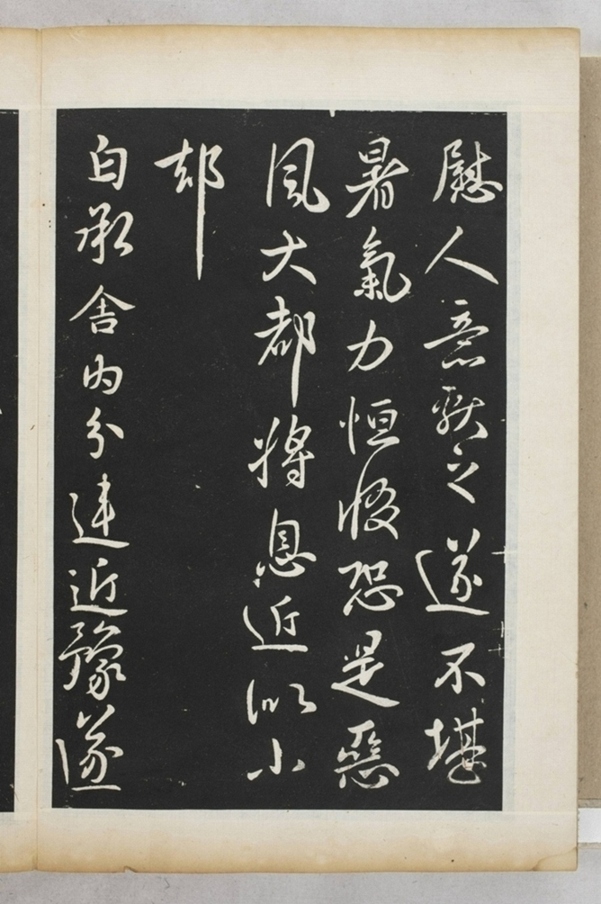 慰人意獻之遂不堪
暑氣力恒惙恐是惡
風大都將息近似小
却
白承舍內分違近豫遂